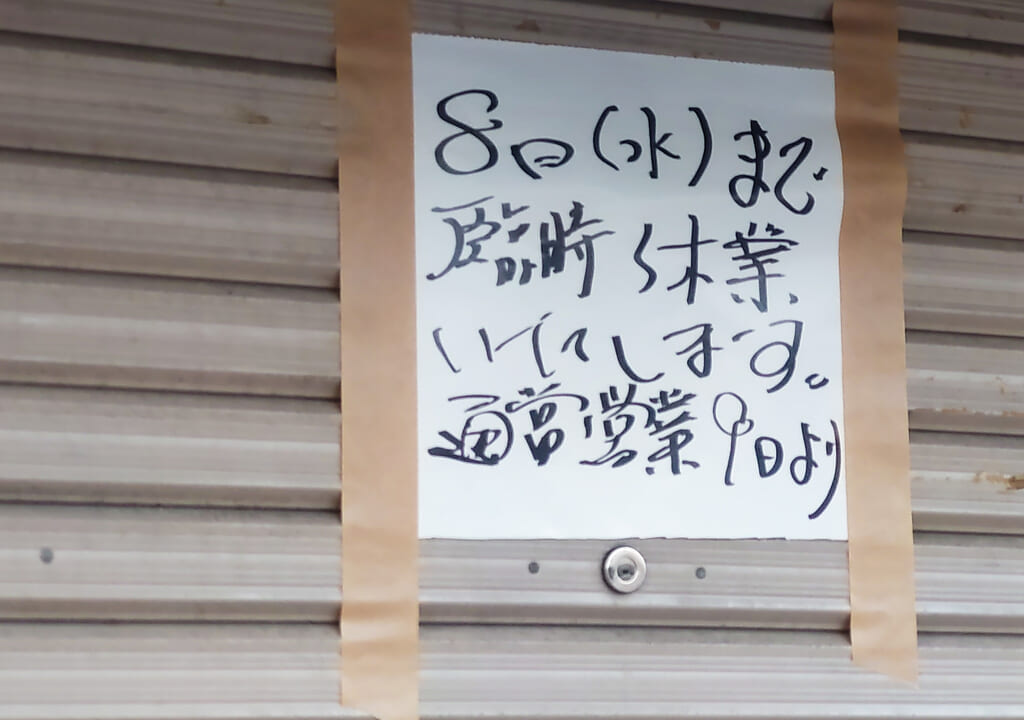 8日(水)まで
臨時休業
いたします。
通常営業9日より